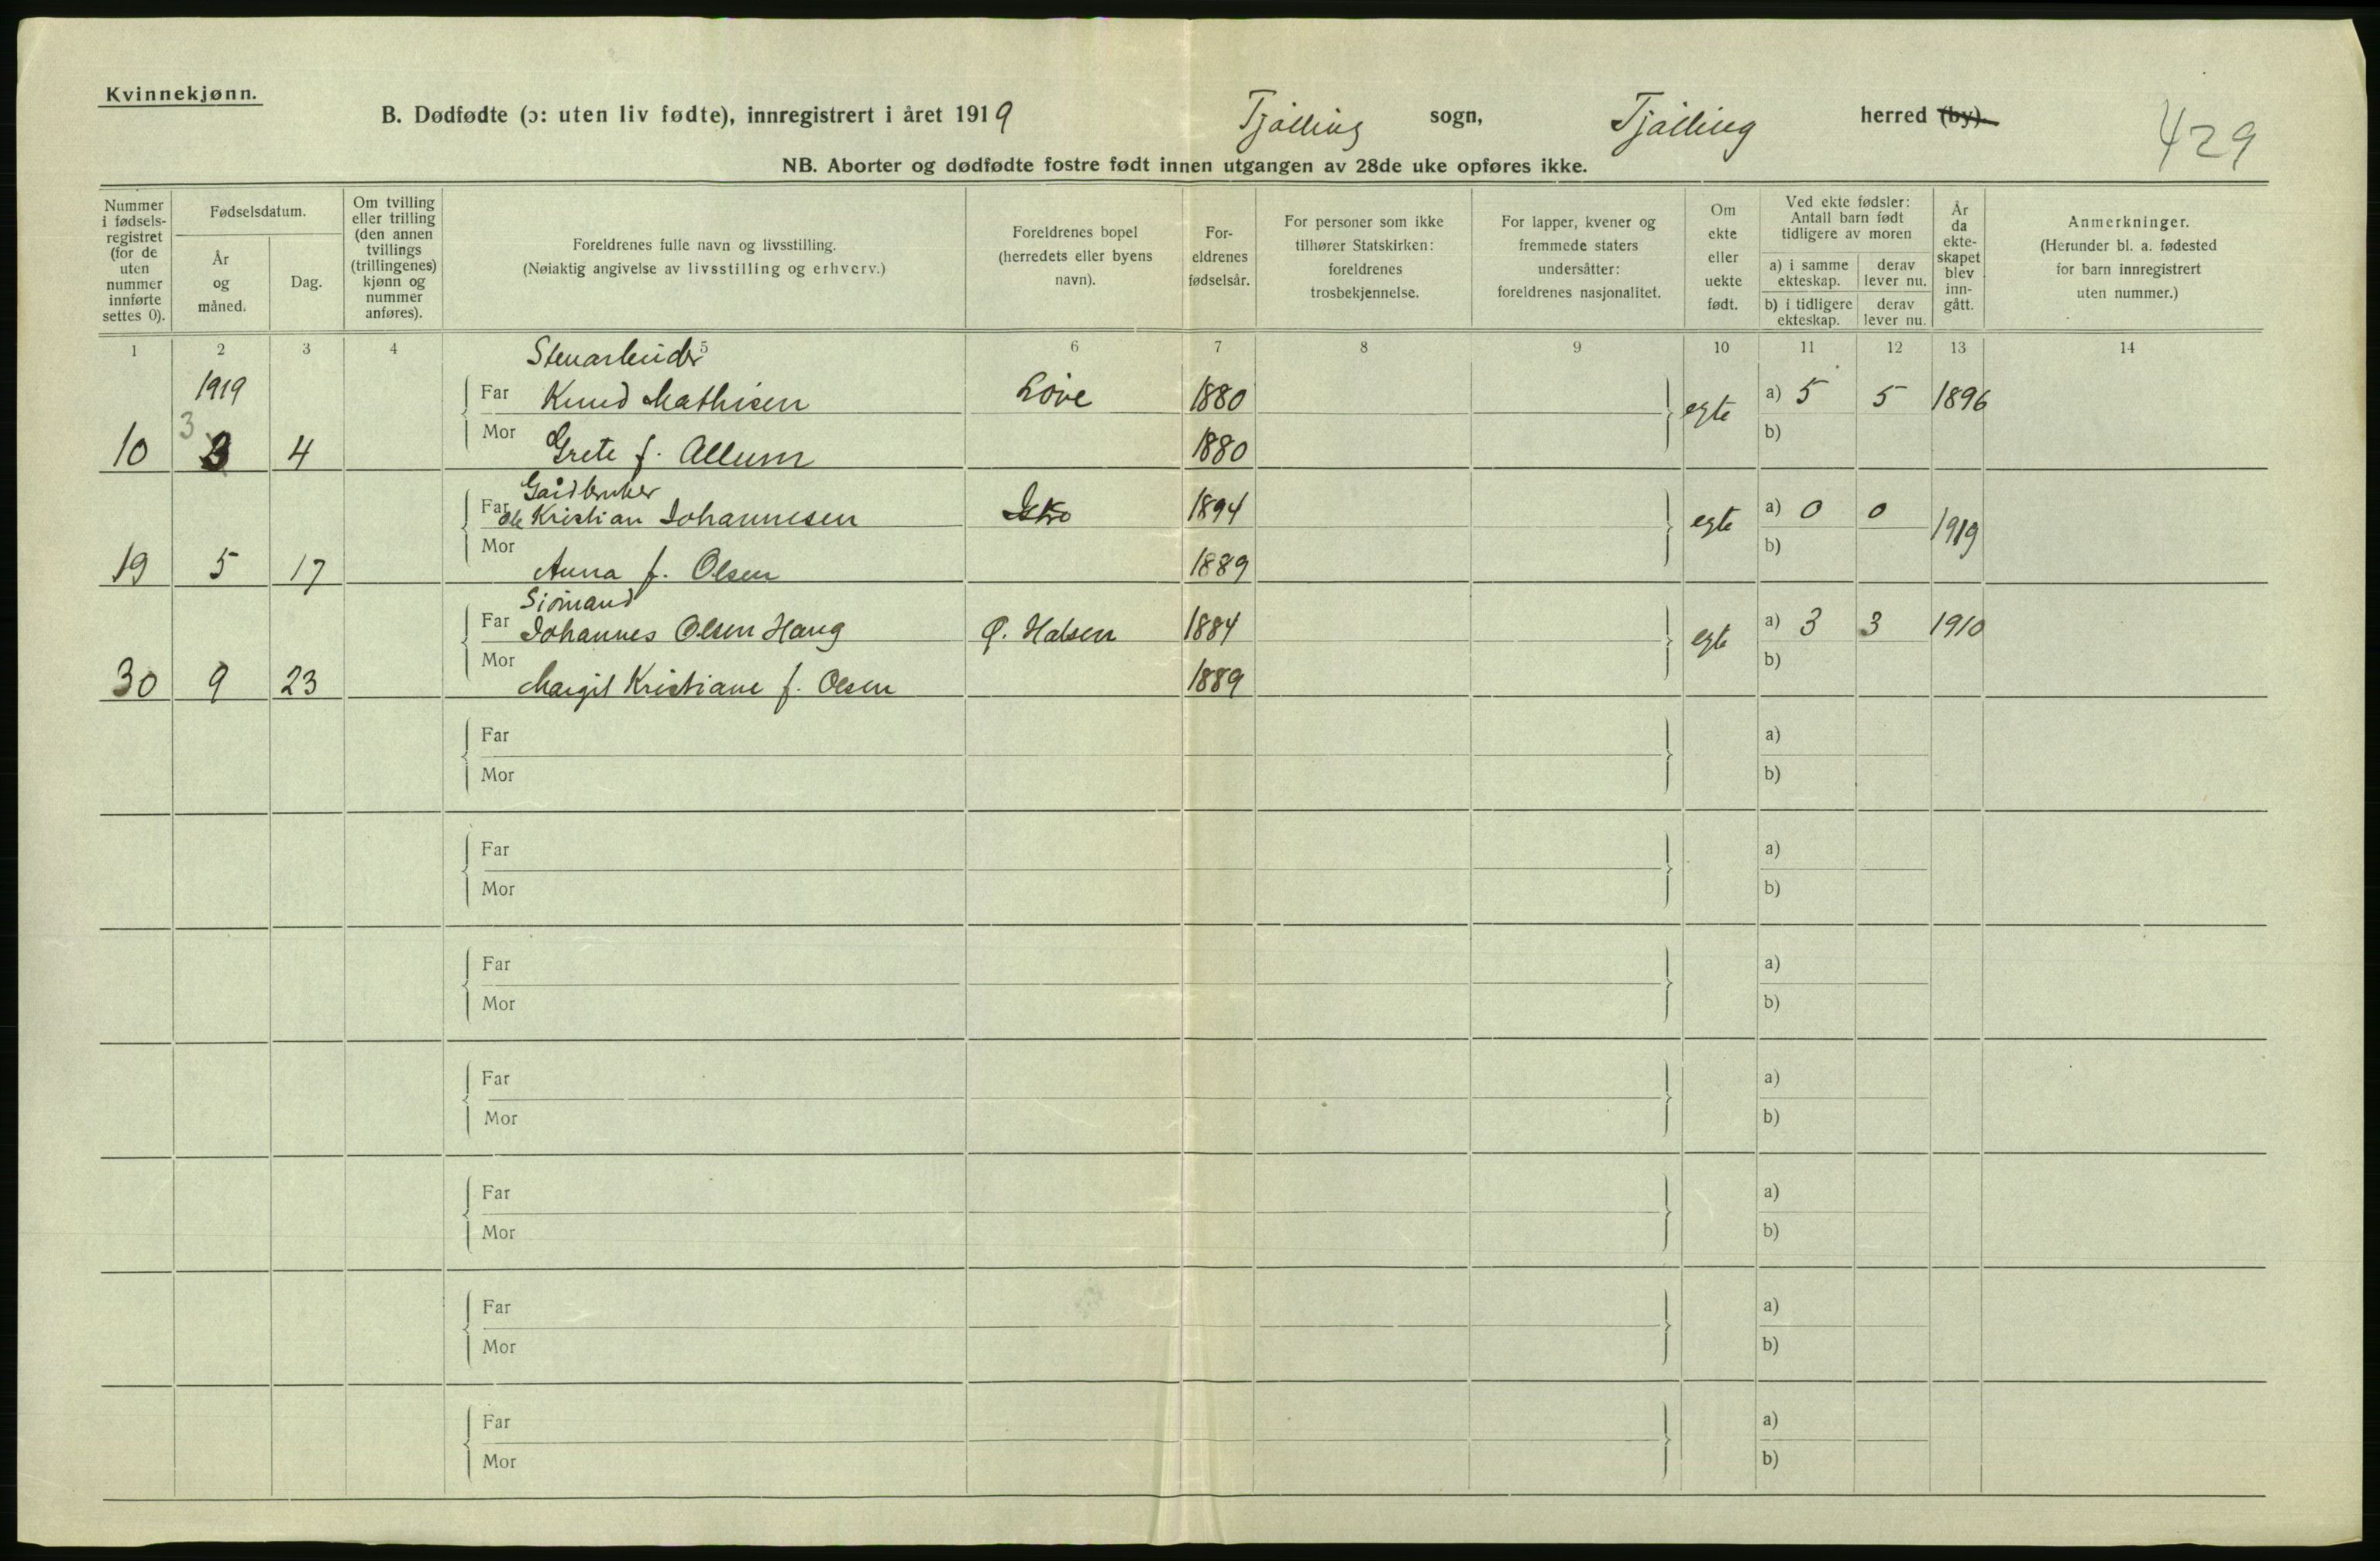 Kvinnekjønn.
B. Dødfødte (ɔ: uten liv fødte), innregistrert i året 1919 Tjølling sogn, Tjølling herred (by).
429
NB. Aborter og dødfødte fostre født innen utgangen av 28de uke opføres ikke.
Nummer i fødsels-registret (for de uten nummer innførte settes 0).
Fødselsdatum.
År og måned.
Dag.
Om tvilling eller trilling (den annen tvillings (trillingenes) kjønn og nummer anføres).
Foreldrenes fulle navn og livsstilling.
(Nøiaktig angivelse av livsstilling og erhverv.)
Foreldrenes bopel (herredets eller byens navn).
For-eldrenes fødselsår.
For personer som ikke tilhører Statskirken: foreldrenes trosbekjennelse.
For lapper, kvener og fremmede staters undersåtter: foreldrenes nasjonalitet.
Om ekte eller uekte født.
Ved ekte fødsler: Antall barn født tidligere av moren
a) i samme ekteskap. derav lever nu.
b) i tidligere ekteskap. derav lever nu.
År da ekte-skapet blev inn-gått.
Anmerkninger.
(Herunder bl. a. fødested for barn innregistrert uten nummer.)
1 2 3 4 5 6 7 8 9 10 11 12 13 14
Stenarbeider
1919 Far Knud Mathisen Løve 1880 egte a) 5 5 1896
3
10 3 4 Mor Grete f. Allum 1880 b)
Gårdbruker
Far Ole Kristian Johannesen 1894 egte a) 0 0 1919
19 5 17 Mor Anna f. Olsen 1889 b)
Sjømand
Far Johannes Olsen Haug Ø. Halsen 1884 egte a) 3 3 1910
30 9 23 Mor Margit Kristiane f. Olsen 1889 b)
Far a)
Mor b)
Far a)
Mor b)
Far a)
Mor b)
Far a)
Mor b)
Far a)
Mor b)
Far a)
Mor b)
Far a)
Mor b)